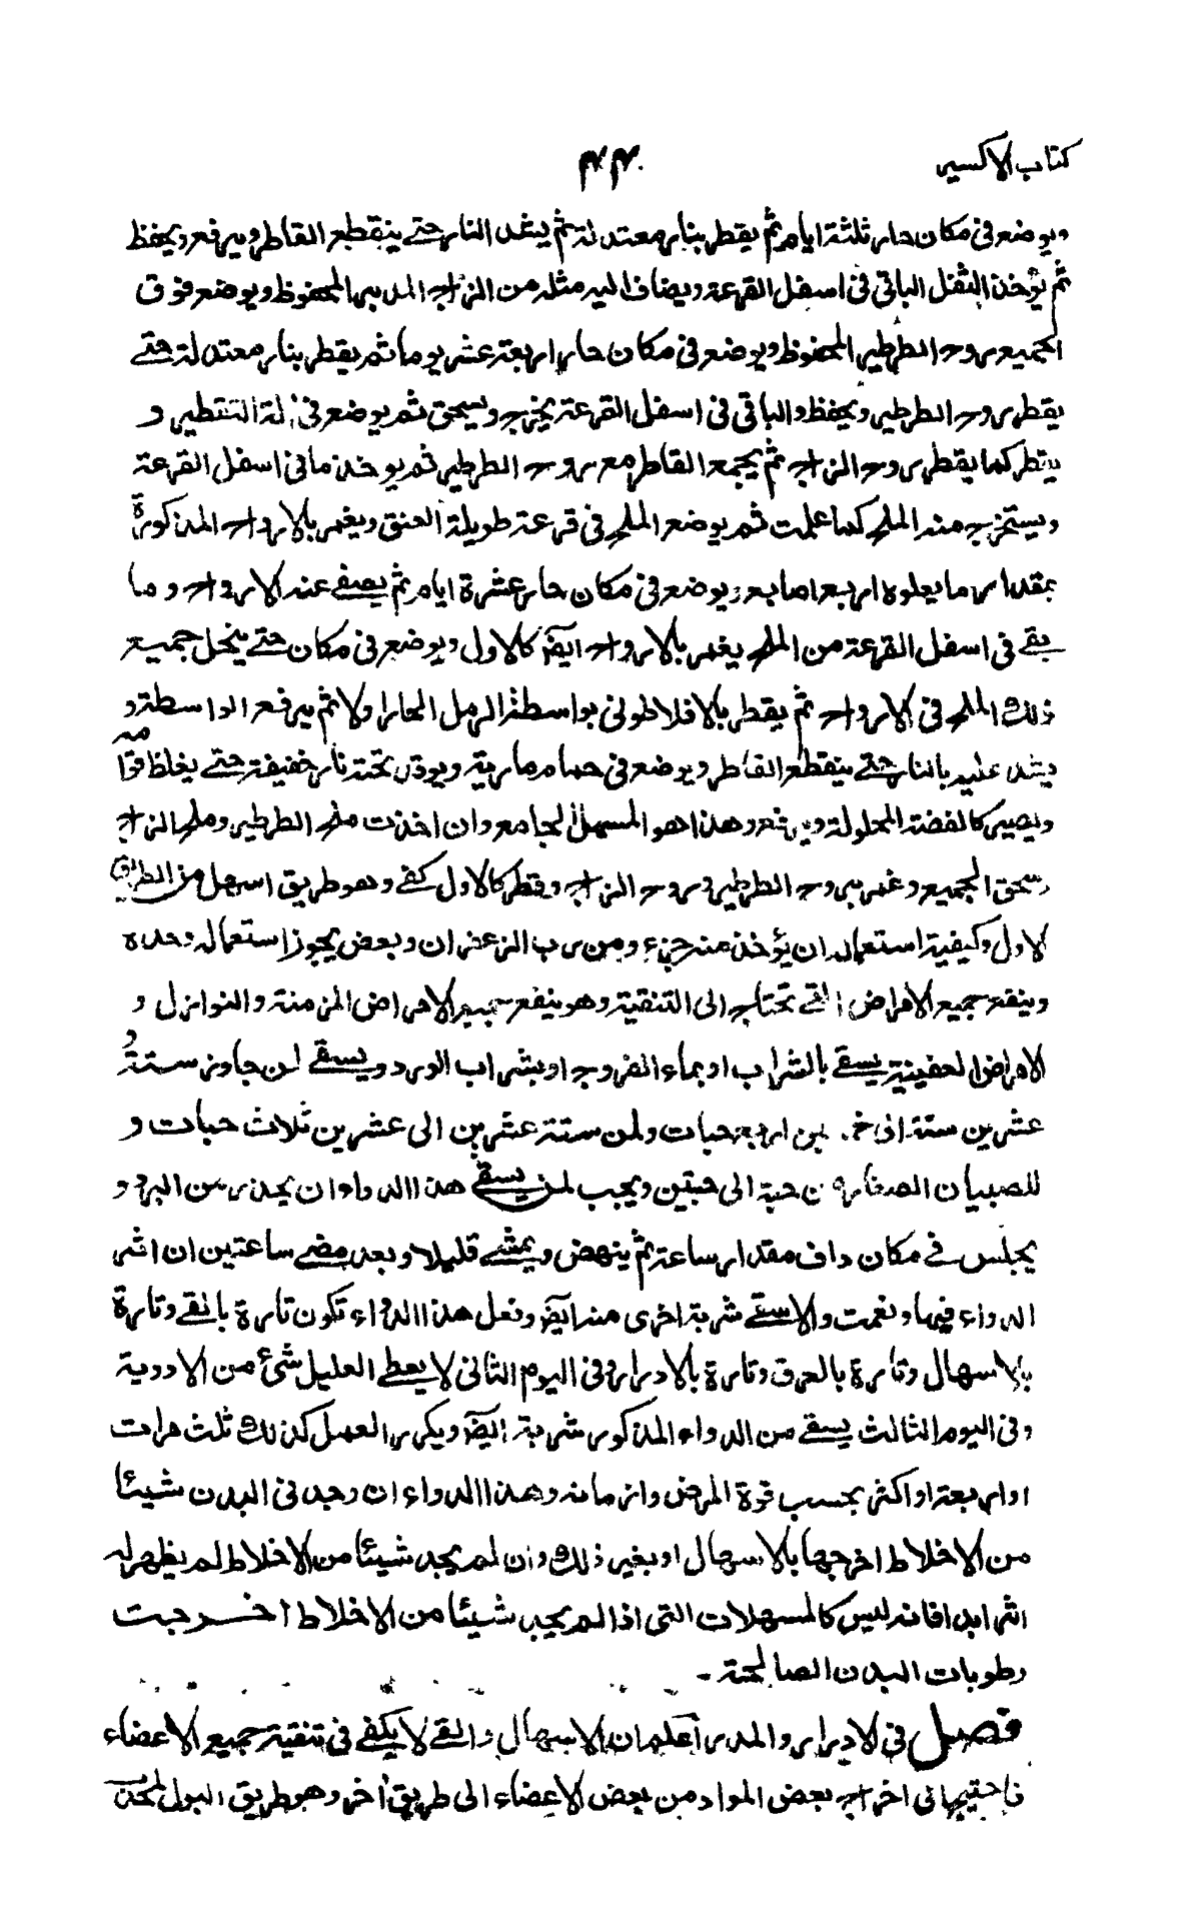 كتاب الاكسير
٤٤
ويوضع فى مكان حار ثلثة ايام ثم يقطر بنار معتدلة ثم يشد النار حتے ينقطع القاطر ويرفع ويحفظ
ثم يؤخذ الثفل الباقى فى اسفل القرعة ويضاف اليه مثله من الزاج المدبر المحفوظ ويوضع فوق
الجميع روح الطرطير المحفوظ ويوضع فى مكان حار اربعة عشر يوما ثم يقطر بنار معتدلة حتے
يقطر روح الطرطير ويحفظ والباقى فى اسفل القرعة يخرج ويسحق ثم يوضع فى الة التقطير و
يقطر كما يقطر روح الزاج ثم يجمع القاطر مع روح الطرطير ثم يوخذ ما فى اسفل القرعة
ويستخرج منه الملح كما علمت ثم يوضع الملح فى قرعة طويلة العنق ويغمر بالارواح المذكورة
بمقدار ما يعلوه اربع اصابع ويوضع فى مكان حار عشرة ايام ثم يصفے عنه الارواح وما
بقے فى اسفل القرعة من الملح يغمر بالارواح ايضؔ كالاول ويوضع فى مكان حتے ينحل جميع
ذلك الملح فى الارواح ثم يقطر بالافلاطونى بواسطة الرمل الحار اولا ثم يرفع الواسطة و
يشد عليه بالنار حتے ينقطع القاطر ويوضع فى حمام مارية ويوقد تحته نار خفيفة حتے يغلظ قوامه
ويصير كالفضة المحلولة ويرفع وهذا هو المسهل الجامع وان اخذت ملح الطرطير وملح الزاج
وسحق الجميع وغمر بروح الطرطير وروح الزاج وقطر كالاول كفے وهو طريق اسهل من الطريق
الاول وكيفية استعماله ان يؤخذ منه جزء ومن رب الزعفران وبعض يجوز استعماله وحده
وينقے جميع الامراض التے تحتاج الى التنقية وهو ينفع جميع الامراض المزمنة والنوازل و
الامراض العفينية يسقے بالشراب او بماء الفروج او بشراب الورد ويسقے لمن جاوز ستة و
عشرين سنة اربع حبات ولمن سنة عشرين الى عشرين ثلاث حبات و
للصبيان الصغار من حبة الى حبتين ويجب لمن يسقے هذا الدواء ان يحذر من البرد و
يجلس فے مكان داف مقدار ساعة ثم ينهض ويمشے قليلا وبعد مضے ساعتين ان اثر
الدواء فبها ونعمت والا سقے شربة اخرى منه ايضؔ وفعل هذا الدواء تكون تارة بالقے وتارة
بالاسهال وتارة بالعرق وتارة بالادرار وفى اليوم الثانى لا يعطے العليل شئ من الادوية
وفى اليوم الثالث يسقے من الدواء المذكور شربة ايضؔ ويكرر العمل كذلك ثلث مرات
او اربعة او اكثر بحسب قوة المرض وازمانه وهذا الدواء ان وجد فى البدن شيئا
من الاخلاط اخرجها بالاسهال او بغير ذلك وان لم يجد شيئا من الاخلاط لم يظهر له
اثر ابدا فانه ليس كالمسهلات التى اذا لم يجد شيئا من الاخلاط اخرجت
رطوبات البدن الصالحة -
فصل فى الادرار والمدر اعلم ان الاسهال والقے لا يكفے فى تنقية جميع الاعضاء
فاحتيج الى اخراج بعض المواد من بعض الاعضاء الى طريق اخر وهو طريق البول